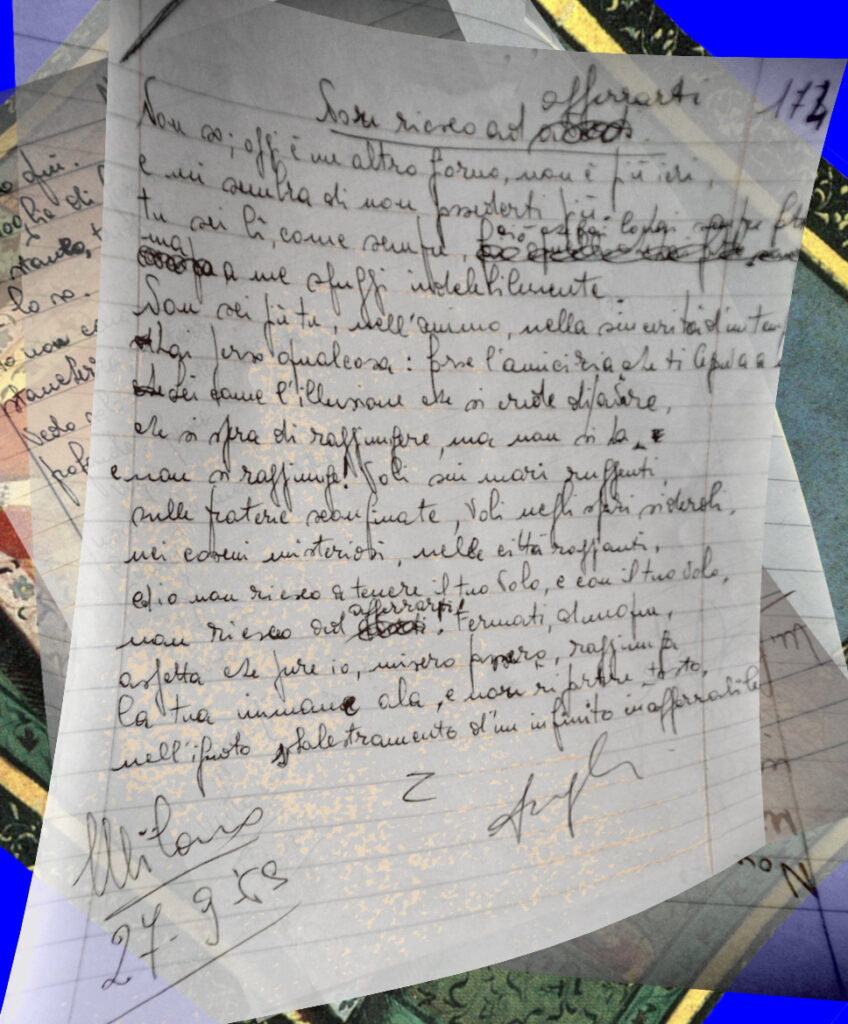 174
Non riesco ad afferrarti
Non so; oggi è un altro giorno, non è più ieri,
e mi sembra di non possederti più
tu sei lì, come sempre,
ma a me sfuggi indelebilmente.
Non sei più tu, nell'animo, nella sincerità d'un
Oggi perso qualcosa: forse l'amicizia che ti legava a
Sei come l'illusione che si crede di avere,
che si spera di raggiungere, ma non si ha,
e non si raggiunge! Voli sui mari ruggenti,
sulle praterie sconfinate, Voli negli spazi siderali,
nei cosmi misteriosi, nelle città raggianti,
ed io non riesco a tenere il tuo Volo, e con il tuo Volo,
non riesco ad afferrarti! Fermati, almeno,
aspetta che pure io, misero passero, raggiunga
la tua immane ala, e non ripartire tosto,
nell'ignoto d'un infinito inafferrabile
Milano
27-9-53
o qui.
stanco,
lo so.
io non
Vedo